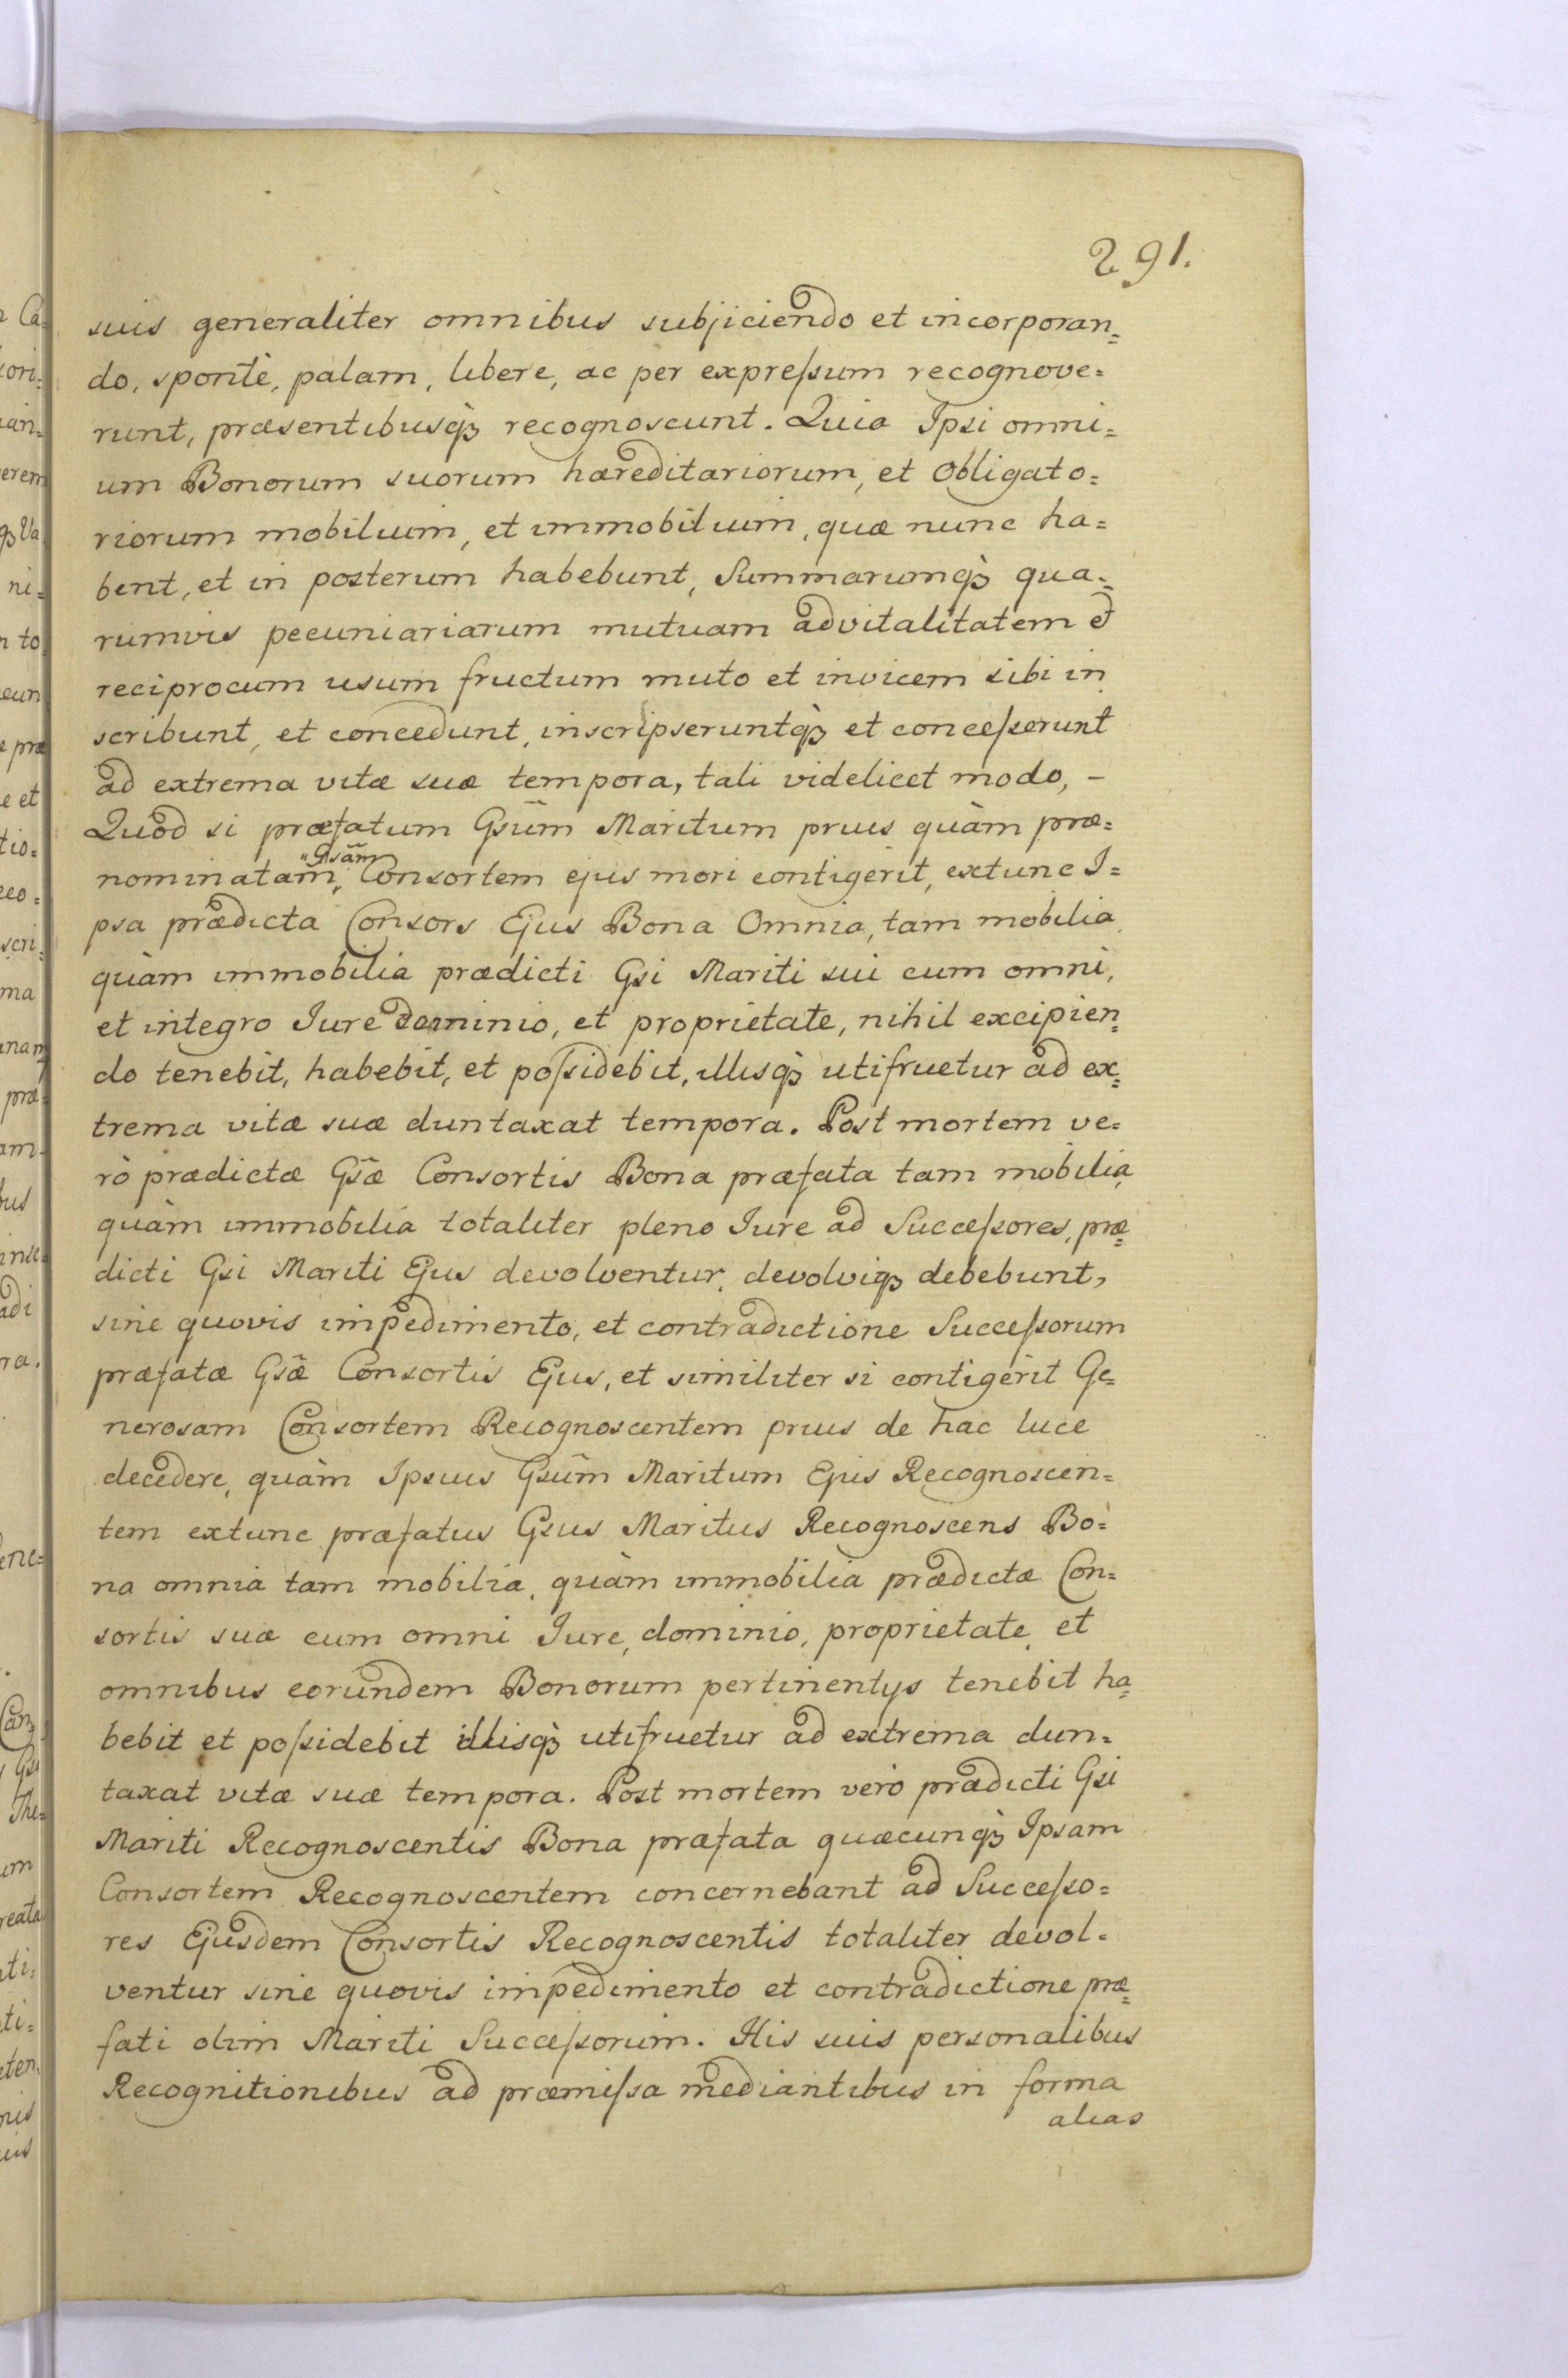 291.
suis generaliter omnibus subjiciendo et incorporan=
do, sponte, palam, libere, ac per expreſsum recognove=
runt, præsentibusqꝫ recognoscunt. Quia Ipsi omni=
um Bonorum suorum hæreditariorum, et Obligato=
riorum mobilium, et immobilium, quæ nunc ha=
bent, et in posterum habebunt, Summarumqꝫ qua=
rumvis pecuniariarum mutuam advitalitatem et
reciprocum usum fructum muto et invicem sibi in
scribunt, et concedunt, inscripseruntqꝫ et conceſserunt
ad extrema vitæ suæ tempora, tali videlicet modo, –
Quod si præfatum Gsum̃ Maritum prius quàm præ=
"Gsam̃
nominatam̃, Consortem ejus mori contigerit, extunc I=
psa prædicta Consors Ejus Bona Omnia, tam mobilia
quàm immobilia prædicti Gsi Mariti sui cum omni,
et integro Jure dominio, et proprietate, nihil excipien=
do tenebit, habebit, et poſsidebit, illisqꝫ utifruetur ad ex=
trema vitæ suæ duntaxat tempora. Post mortem ve=
rò prædictæ Gsæ̃ Consortis Bona præfata tam mobilia
quàm immobilia totaliter pleno Jure ad Succeſsores, præ=
dicti Gsi Mariti Ejus devolventur, devolviqꝫ debebunt,
sine quovis impedimento, et contradictione Succeſsorum
præfatæ Gsæ̃ Consortis Ejus, et similiter si contigerit Ge=
nerosam Consortem Recognoscentem prius de hac luce
decedere, quàm Ipsius Gsum̃ Maritum Ejus Recognoscen=
tem extunc præfatus Gsus Maritus Recognoscens Bo=
na omnia tam mobilia, quàm immobilia prædictæ Con=
sortis suæ cum omni Jure, dominio, proprietate, et
omnibus eorundem Bonorum pertinentys tenebit ha=
bebit et poſsidebit illisqꝫ utifruetur ad extrema dun=
taxat vitæ suæ tempora. Post mortem verò prædicti Gsi
Mariti Recognoscentis Bona præfata quæcunqꝫ Ipsam
Consortem Recognoscentem concernebant ad Succeſso=
res Ejusdem Consortis Recognoscentis totaliter devol=
ventur sine quovis impedimento et contradictione præ=
fati olim Mariti Succeſsorum. His suis personalibus
Recognitionibus ad præmiſsa mediantibus in forma
alias